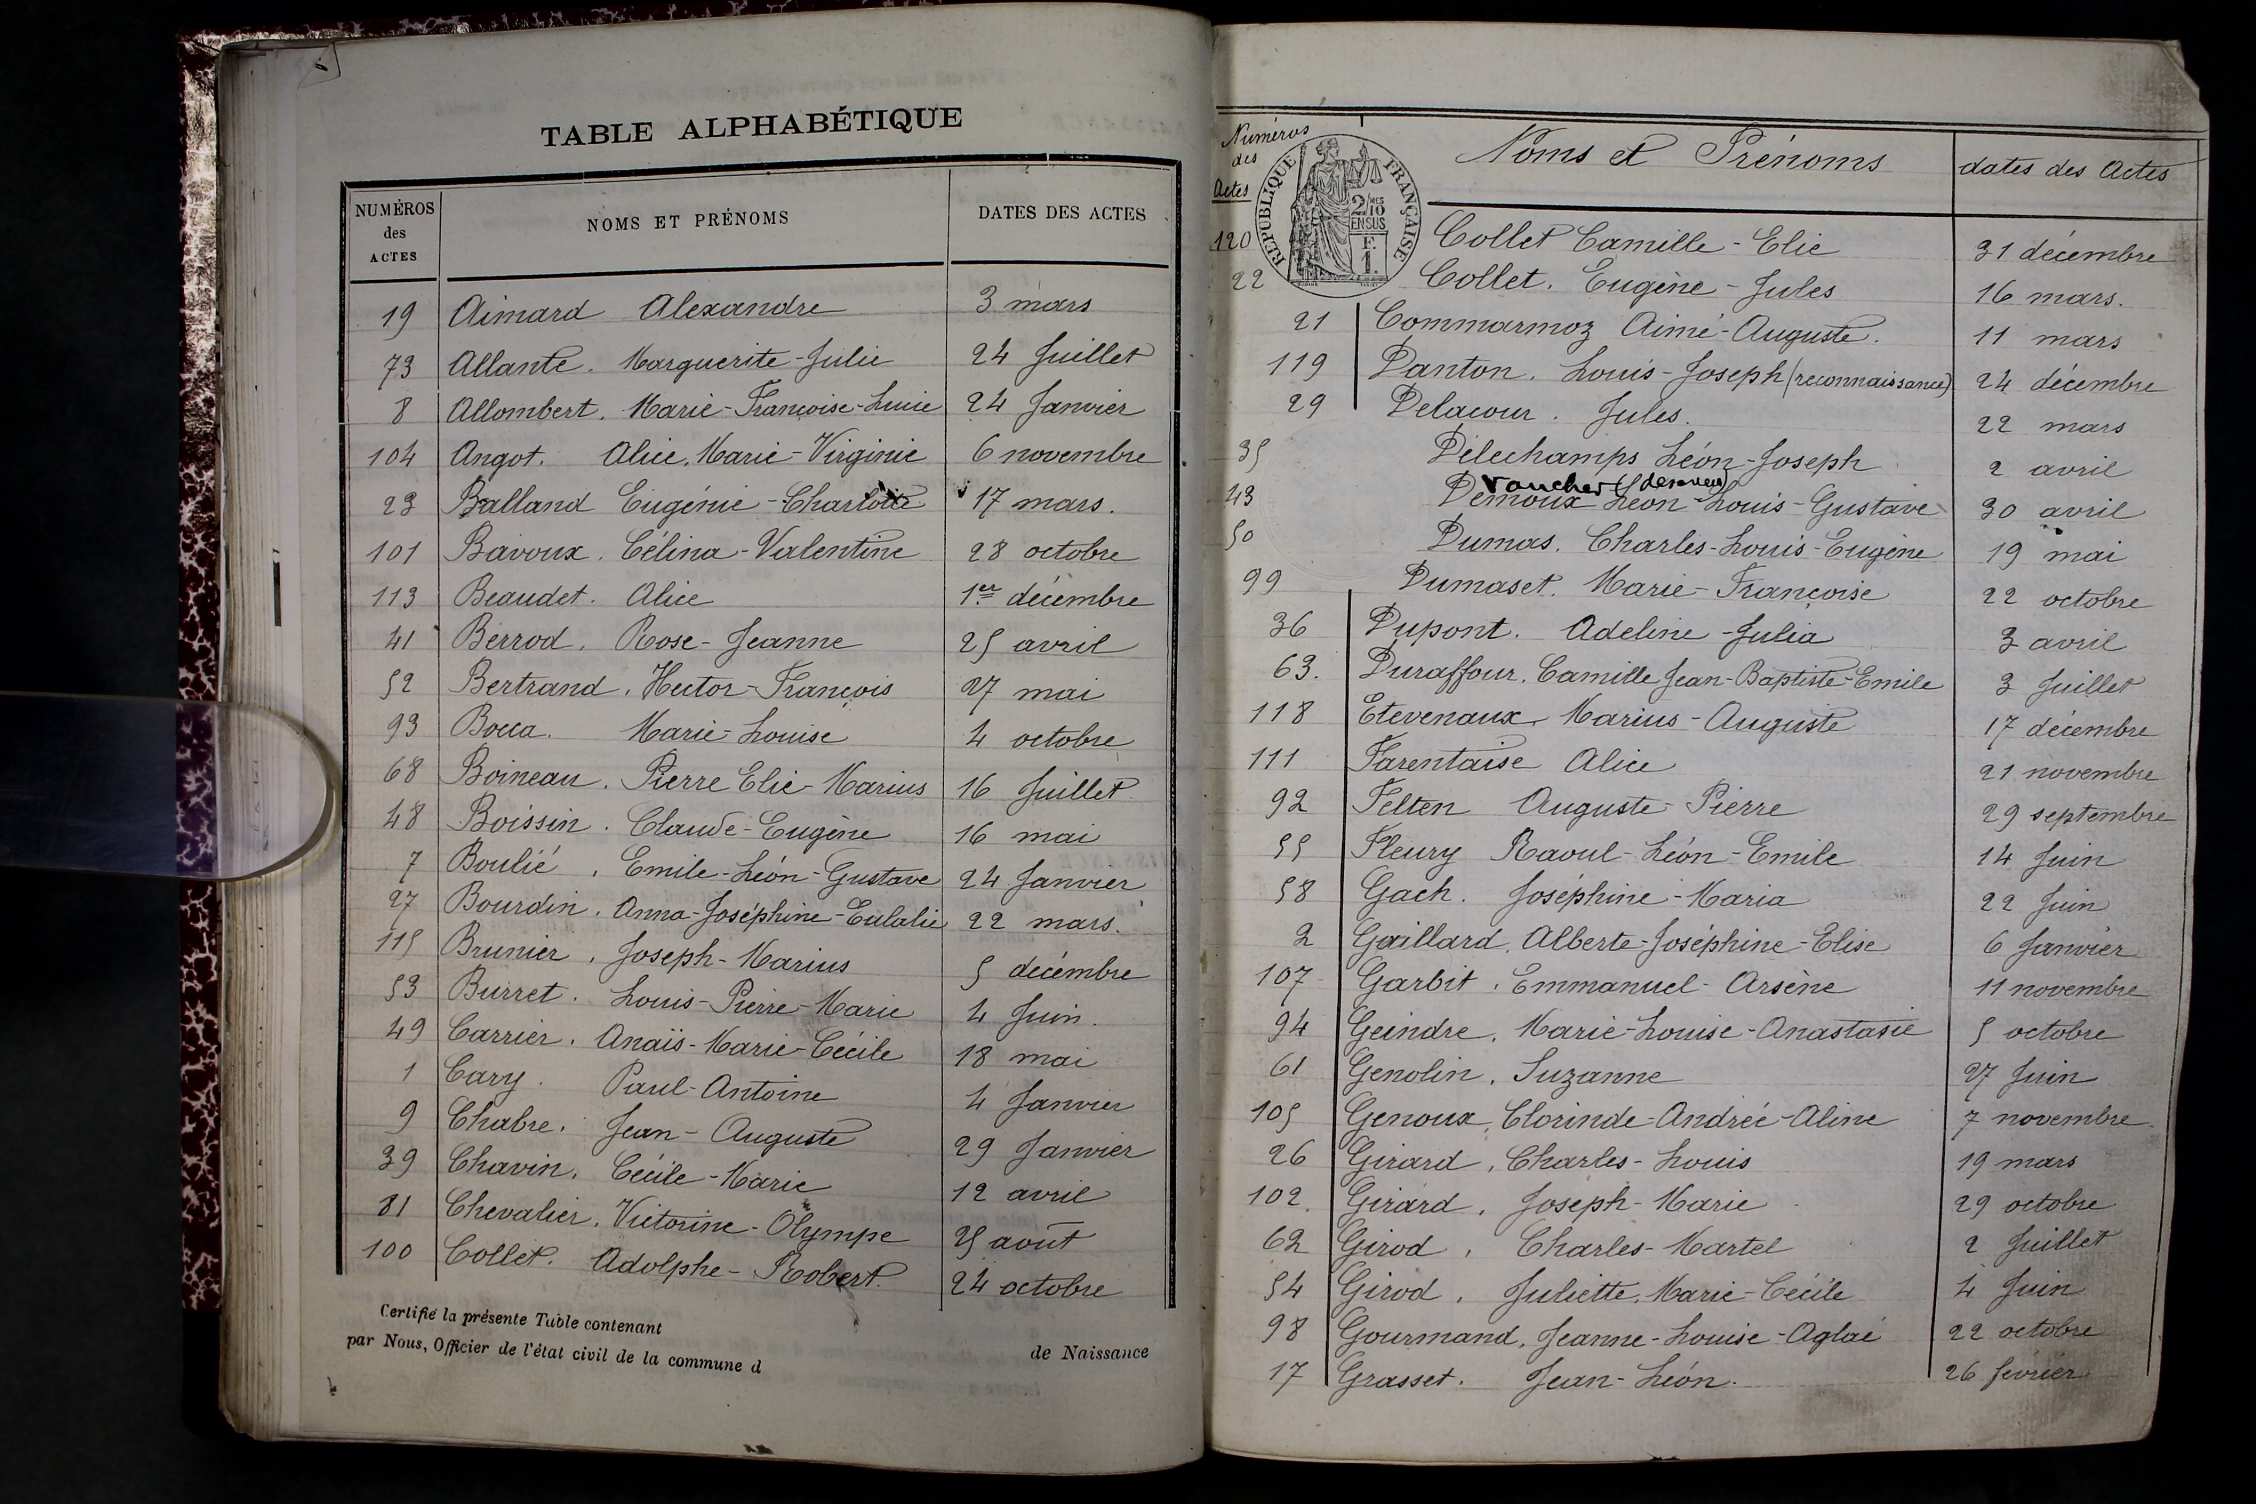 TABLE ALPHABÉTIQUE
NUMÉROS des ACTES NOMS ET PRÉNOMS DATES DES ACTES
19 Aimard Alexandre 3 mars
73 Allante. Marguerite-Julie 24 Juillet
8 Allombert. Marie-Françoise-Lucie 24 Janvier
104 Angot. Alice, Marie-Virginie 6 novembre
23 Balland Eugénie-Charlotte 17 mars.
101 Bavoux. Célina-Valentine 28 octobre
113 Beaudet. Alice 1er décembre
41 Berrod. Rose-Jeanne 25 avril
52 Bertrand. Hector-François 27 mai
93 Bocca. Marie-Louise 4 octobre
68 Boineau. Pierre Elie-Marius 16 Juillet
48 Boissin. Claude-Eugène 16 mai
7 Boulié. Emile-Léon-Gustave 24 Janvier
27 Bourdin. Anna-Joséphine-Eulalie 22 mars.
115 Brunier, Joseph-Marius 5 décembre
53 Burret. Louis-Pierre-Marie 4 Juin.
49 Carrier. Anaïs-Marie-Cécile 18 mai
1 Cary. Paul-Antoine 4 Janvier
9 Chabre. Jean-Auguste 29 Janvier
39 Chavin. Cécile-Marie 12 avril
81 Chevalier. Victorine-Olympe 25 août
100 Collet. Adolphe-Robert. 24 octobre
Certifié la présente Table contenant de Naissance
par Nous, Officier de l'état civil de la commune d
Numéros des Actes Noms et Prénoms dates des Actes
RÉPUBLIQUE FRANÇAISE
2/10 MES
EN SUS
F.
1.
120 Collet Camille-Elie 31 décembre
22 Collet. Eugène-Jules 16 mars.
21 Commarmoz Aimé-Auguste. 11 mars
119 Danton. Louis-Joseph (reconnaissance) 24 décembre
29 Delacour. Jules. 22 mars
35 Délechamps Léon-Joseph 2 avril
Vaucher (desaveu)
43 Demoux Léon-Louis-Gustave 30 avril
50 Dumas. Charles-Louis-Eugène 19 mai
99 Dumaset. Marie-Françoise 22 octobre
36 Dupont. Adeline-Julia 3 avril
63. Duraffour. Camille Jean-Baptiste-Emile 3 Juillet
118 Etevenaux Marius-Auguste 17 décembre
111 Farentaise Alice 21 novembre
92 Felten Auguste-Pierre 29 septembre
55 Fleury Raoul-Léon-Emile 14 Juin
58 Gach. Joséphine-Maria 22 Juin
2 Gaillard. Alberte-Joséphine-Elise 6 Janvier
107 Garbit. Emmanuel-Arsène 11 novembre
94 Geindre. Marie-Louise-Anastasie 5 octobre
61 Genolin. Suzanne 27 Juin
105 Genoux. Clorinde-Andrée-Aline 7 novembre
26 Girard. Charles-Louis 19 mars
102. Girard. Joseph-Marie 29 octobre
62 Girod. Charles-Martel 2 Juillet
54 Girod. Juliette. Marie-Cécile 4 Juin
98 Gourmand. Jeanne-Louise-Aglaé 22 octobre
17 Grasset. Jean-Léon. 26 février